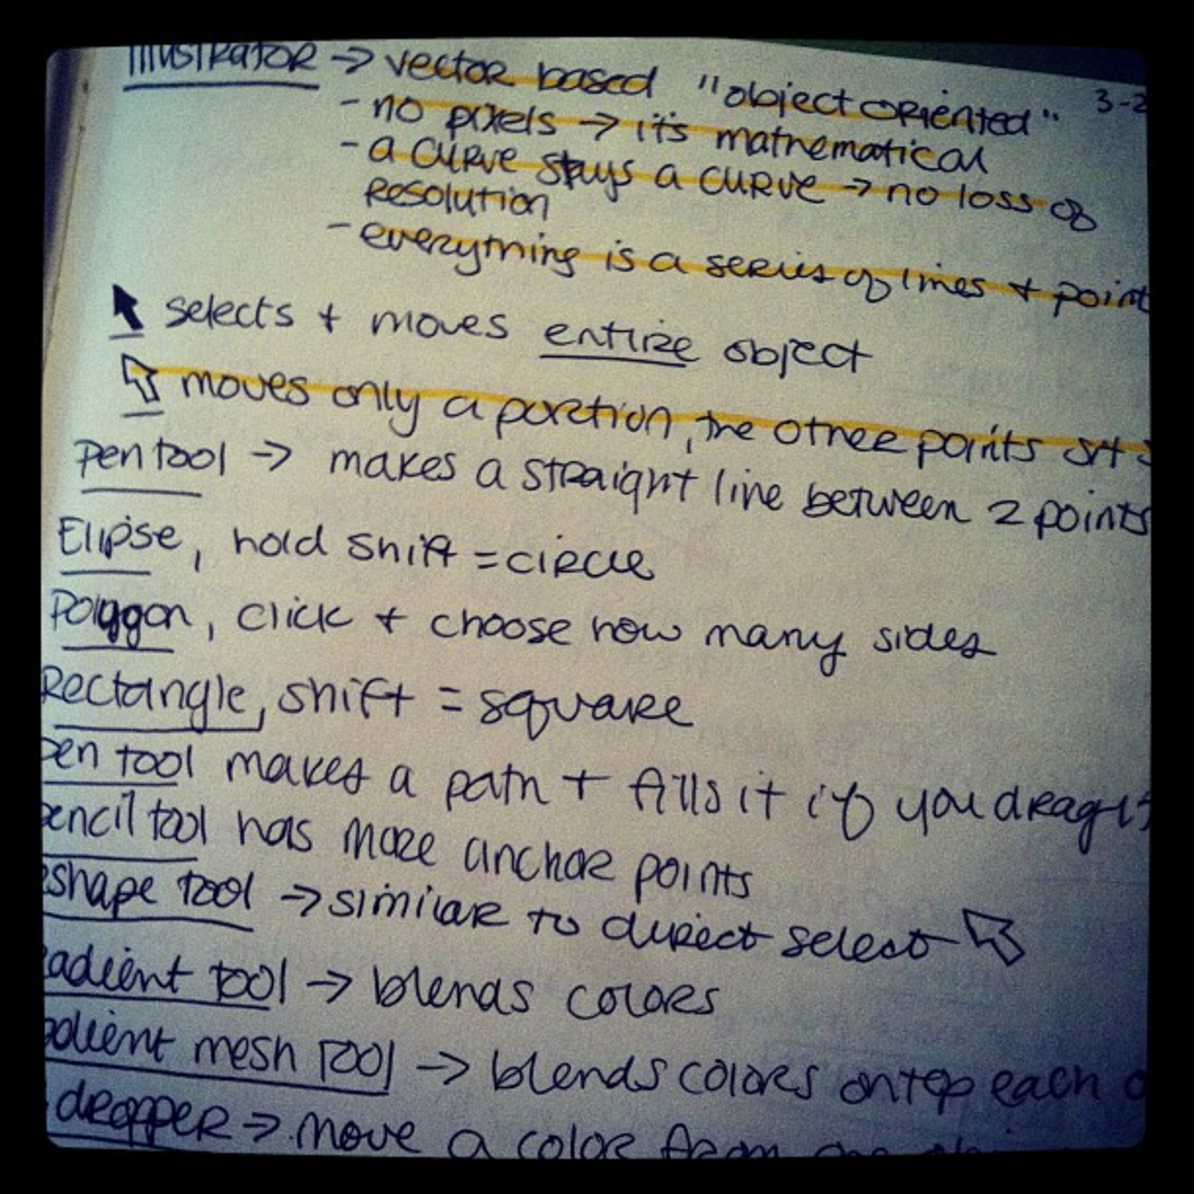 Illustrator → vector based "object oriented" 3-2
- no pixels → it's mathematical
- a curve stays a curve → no loss of
resolution
- everything is a series of lines + point
selects + moves entire object
moves only a portion, the other points sit
pen tool → makes a straight line between 2 points
Elipse, hold shift = circle
Polygon, click + choose how many sides
Rectangle, shift = square
pen tool makes a path + fills it if you drag it
pencil tool has more anchor points
eshape tool → similar to direct select
adient tool → blends colors
adient mesh tool → blends colors ontop each o
dropper → move a color from one